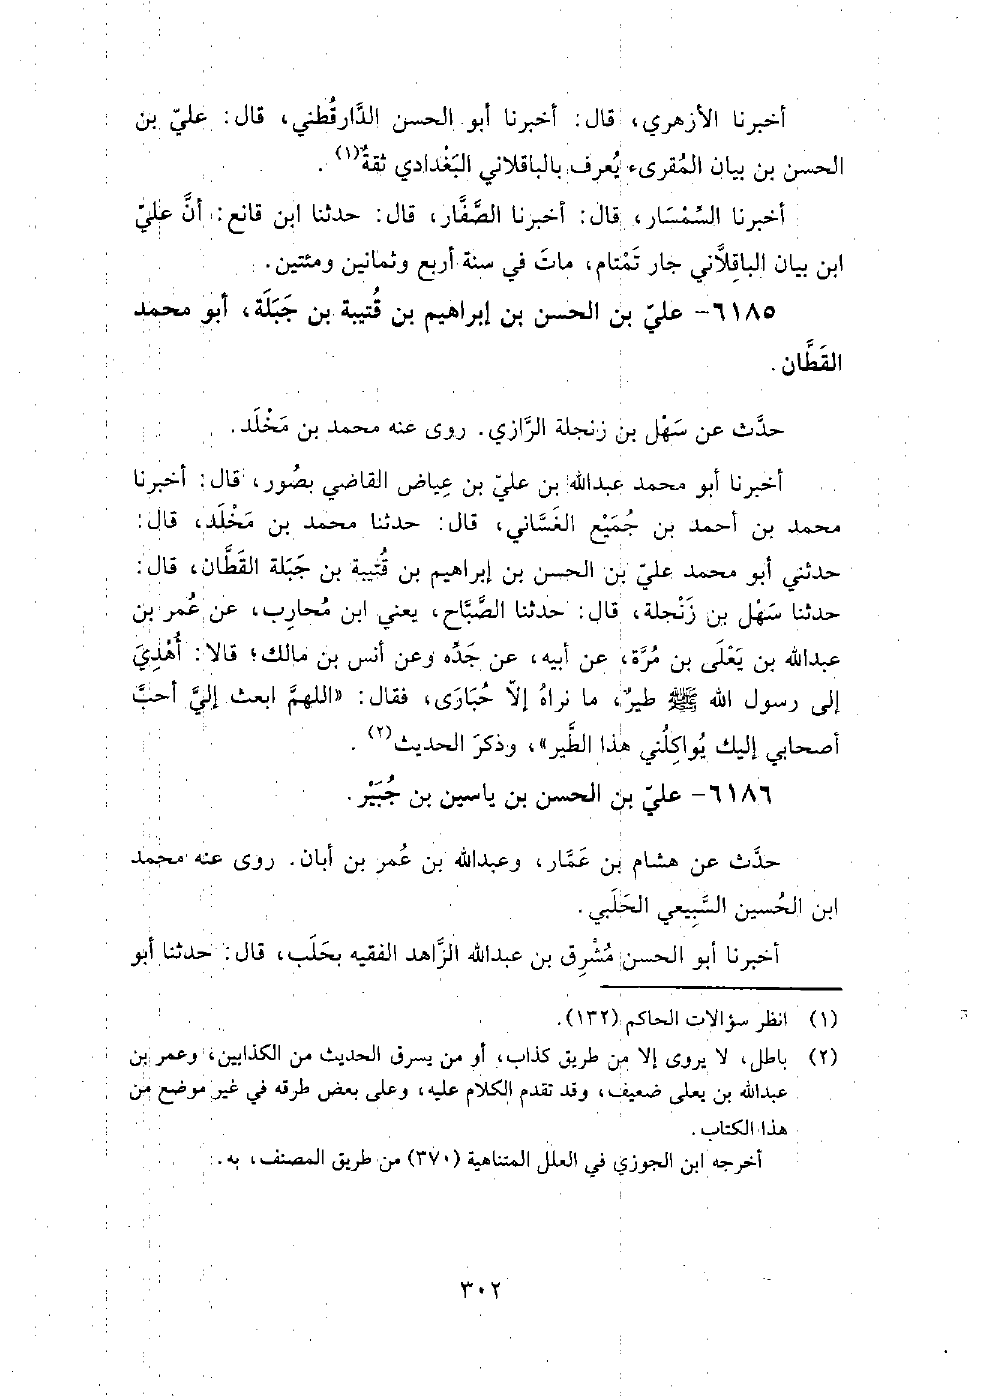 أخبرنا الأزهري، قال: أخبرنا أبو الحسن الدَّارقُطني، قال: عليّ بن
الحسن بن بيان المُقرىء يُعرف بالباقلاني البَغْدادي ثقةٌ(١) .
أخبرنا السِّمْسَار، قال: أخبرنا الصَّفَّار، قال: حدثنا ابن قانع: أنَّ عليّ
ابن بيان الباقِلاَّني جار تَمْتام، ماتَ في سنة أربع وثمانين ومئتين.
٦١٨٥- عليّ بن الحسن بن إبراهيم بن قُتيبة بن جَبَلَة، أبو محمد
القَطَّان .
حدَّث عن سَهْل بن زنجلة الرَّازي. روى عنه محمد بن مَخْلَد.
أخبرنا أبو محمد عبدالله بن عليّ بن عِياض القاضي بصُور، قال: أخبرنا
محمد بن أحمد بن جُمَيْع الغَسَّاني، قال: حدثنا محمد بن مَخْلَد، قال:
حدثني أبو محمد عليّ بن الحسن بن إبراهيم بن قُتيبة بن جَبَلة القَطَّان، قال:
حدثنا سَهْل بن زَنْجلة، قال: حدثنا الصَّبَّاح، يعني ابن مُحارِب، عن عُمر بن
عبدالله بن يَعْلَى بن مُرَّة، عن أبيه، عن جَدِّه وعن أنس بن مالك؛ قالا: أُهْدِيَ
إلى رسول الله ﷺ طيرٌ، ما نراهُ إلّا حُبَارَى، فقال: «اللهمَّ ابعث إليَّ أحبَّ
أصحابي إليك يُواكِلُني هذا الطَّير»، وذكرَ الحديث(٢) .
٦١٨٦- عليّ بن الحسن بن ياسين بن جُبَيْر.
حدَّث عن هشام بن عَمَّار، وعبدالله بن عُمر بن أبان. روى عنه محمد
ابن الحُسين السَّبِيعي الحَلَبي.
أخبرنا أبو الحسن مُشْرِق بن عبدالله الزَّاهد الفقيه بحَلَب، قال: حدثنا أبو
(١) انظر سؤالات الحاكم (١٣٢).
(٢) باطل، لا يروى إلا من طريق كذاب، أو من يسرق الحديث من الكذابين، وعمر بن
عبدالله بن يعلى ضعيف، وقد تقدم الكلام عليه، وعلى بعض طرقه في غير موضع من
هذا الكتاب .
أخرجه ابن الجوزي في العلل المتناهية (٣٧٠) من طريق المصنف، به.
٣٠٢